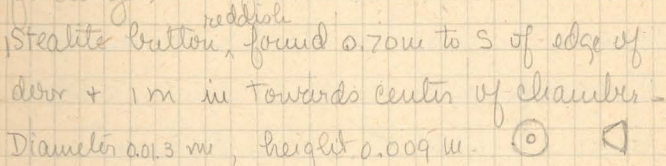 reddish
1 Steatite button, found 0.70m to S of edge of
door + 1m in towards center of chamber -
Diameter 0.01.3 m, height 0.009 m.